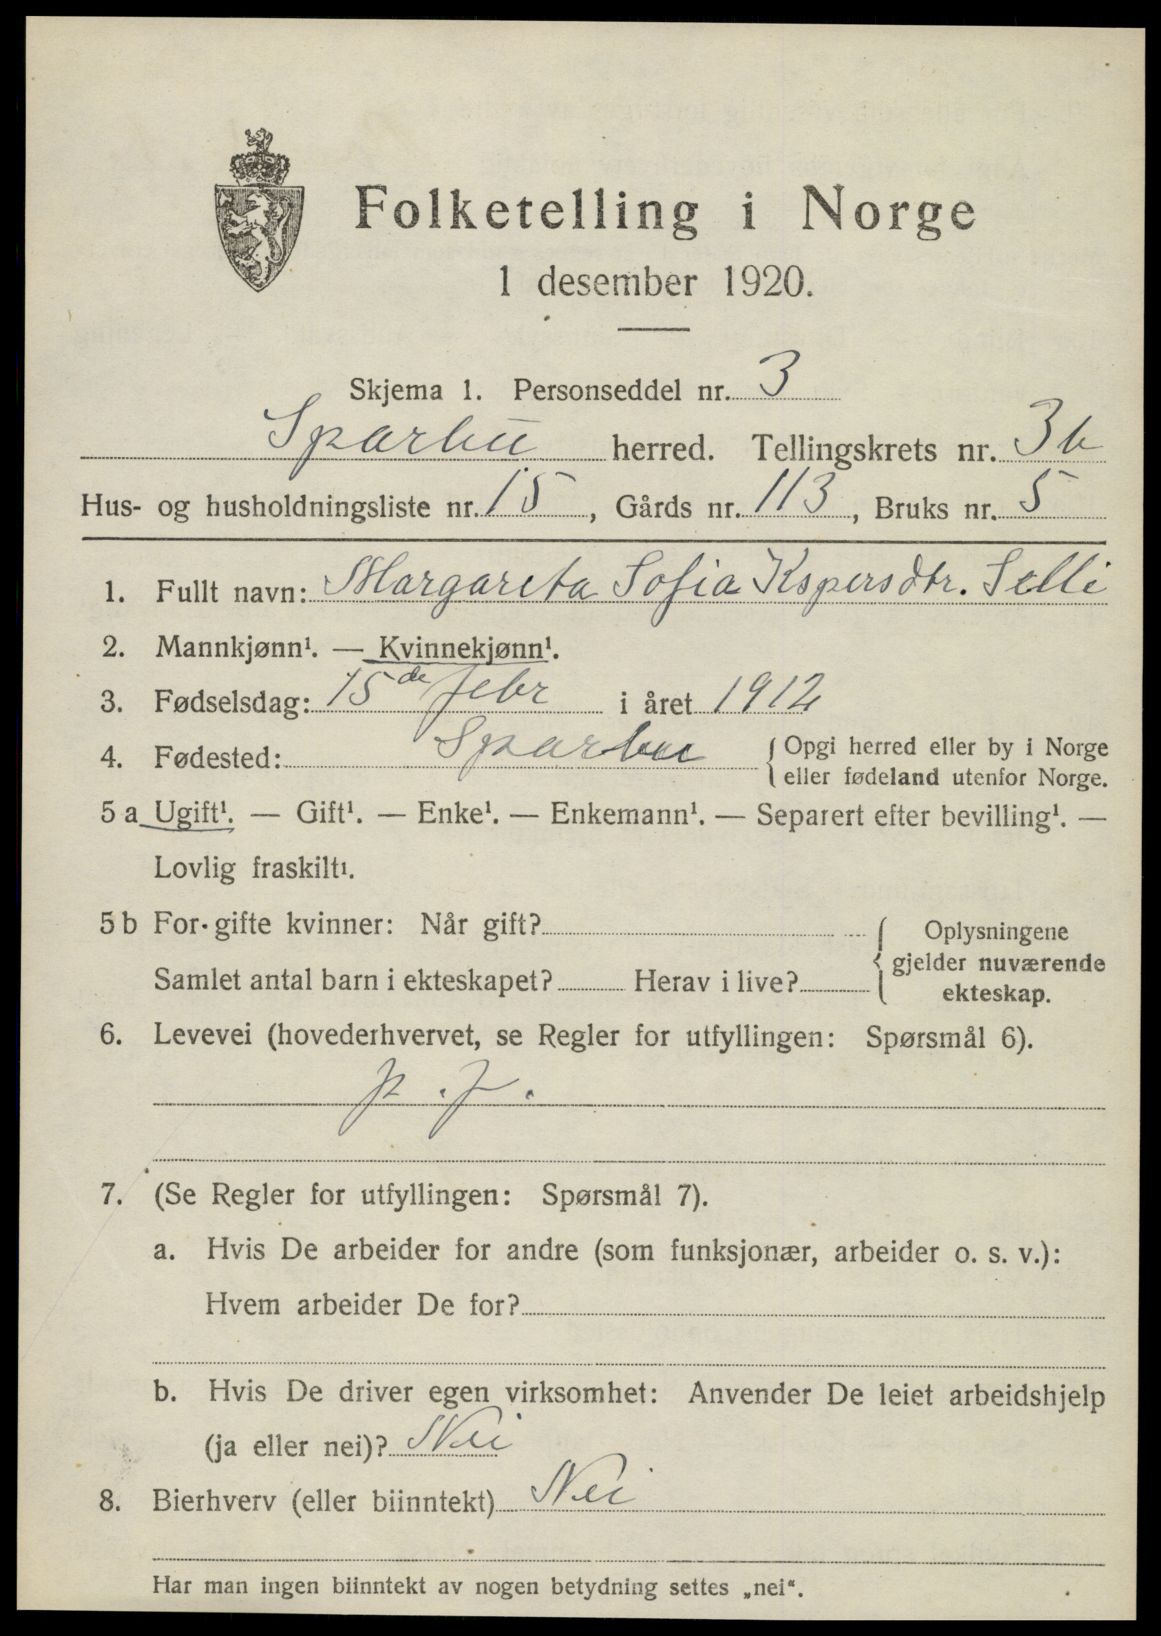 Folketelling i Norge
1 desember 1920.
Skjema 1. Personseddel nr. 3
Sparbu herred. Tellingskrets nr. 3b
Hus- og husholdningsliste nr. 15, Gårds nr. 113, Bruks nr. 5
1. Fullt navn: Margareta Sofia Kspersdtr. Selli
2. Mannkjønn¹. — Kvinnekjønn¹.
3. Fødselsdag: 15de febr i året 1912
4. Fødested: Sparbu { Opgi herred eller by i Norge
eller fødeland utenfor Norge.
5 a Ugift¹. — Gift¹. — Enke¹. — Enkemann¹. — Separert efter bevilling¹. —
Lovlig fraskilt¹.
5 b For gifte kvinner: Når gift? { Oplysningene
gjelder nuværende
Samlet antal barn i ekteskapet? Herav i live? ekteskap.
6. Levevei (hovederhvervet, se Regler for utfyllingen: Spørsmål 6).
p. f.
7. (Se Regler for utfyllingen: Spørsmål 7).
a. Hvis De arbeider for andre (som funksjonær, arbeider o. s. v.):
Hvem arbeider De for?
b. Hvis De driver egen virksomhet: Anvender De leiet arbeidshjelp
(ja eller nei)? Nei
8. Bierhverv (eller biinntekt) Nei
Har man ingen biinntekt av nogen betydning settes „nei“.